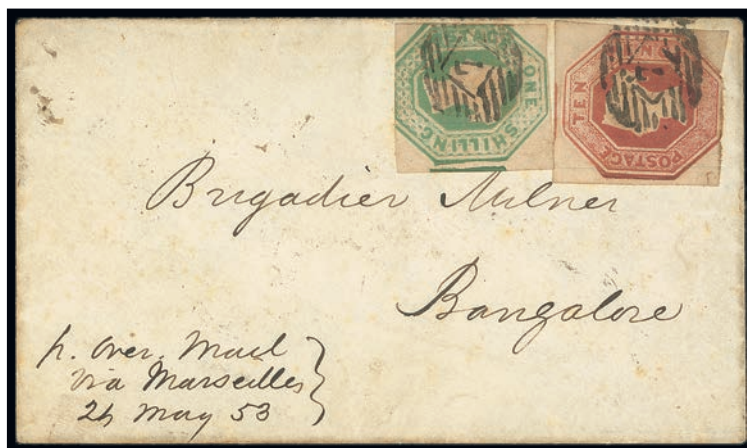 POSTAGE ONE SHILLING
TEN POSTAGE
Brigadier Milner
Bangalore
p. Over. Mail
via Marseilles
24 May 53